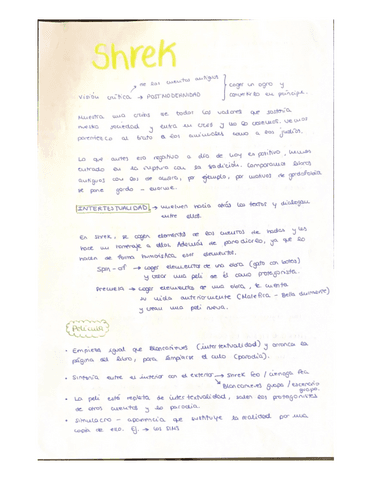 Shrek
de los cuentos antiguos
Visión crítica → POSTMODERNIDAD
coger un ogro y
convertirlo en príncipe.
Muestra una crisis de todos los valores que sostenía
nuestra sociedad y entra en crisis y no lo creemos. Vemos
el trato a los animales como a los judíos.
Lo que antes era negativo a día de hoy es positivo, hemos
entrado en la ruptura con la tradición. Comparamos libros
antiguos con los de ahora, por ejemplo, por motivos de gordofobia
se pone gordo - enorme.
INTERTEXTUALIDAD → vuelven hacia atrás los textos y dialogan
entre ellos.
En Shrek, se cogen elementos de los cuentos de hadas y los
hace un homenaje a ellos. Además de parodiarlo, ya que lo
hacen de forma humorística ese elemento.
Spin-off → coger elementos de una obra (gato con botas)
y crear una peli de él como protagonista.
Precuela → coger elementos de una obra, te cuenta
su vida anteriormente (Maléfica - Bella durmiente)
y crean una peli nueva.
Película
• Empieza igual que Blancanieves (intertextualidad) y arranca la
página del libro, para limpiarse el culo (parodia).
• Sintonía entre el interior con el exterior → Shrek feo / ciénaga fea
Blancanieves guapa / escenario
guapo.
• La peli está repleta de intertextualidad, salen los protagonistas
de otros cuentos y lo parodia.
• Simulacro → apariencia que sustituye la realidad por una
copia de eso. Ej →